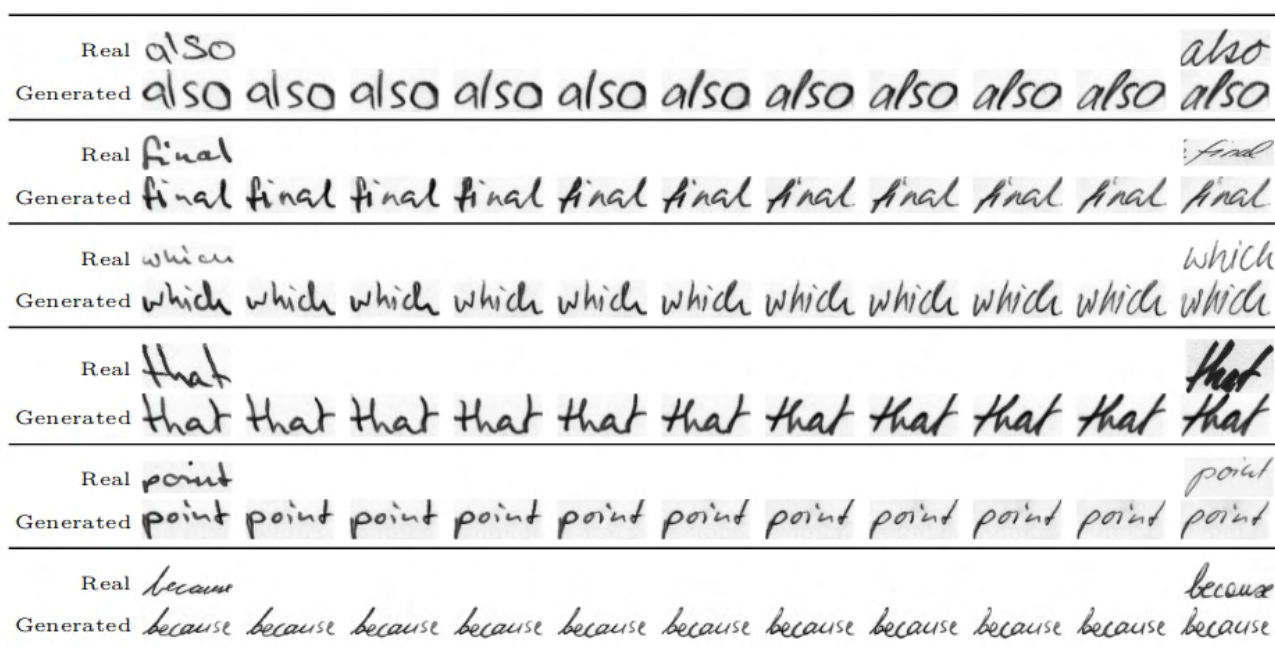 Real also also
Generated also also also also also also also also also also also
Real final final
Generated final final final final final final final final final final final
Real which which
Generated which which which which which which which which which which which
Real that that
Generated that that that that that that that that that that that
Real point point
Generated point point point point point point point point point point point
Real because because
Generated because because because because because because because because because because because